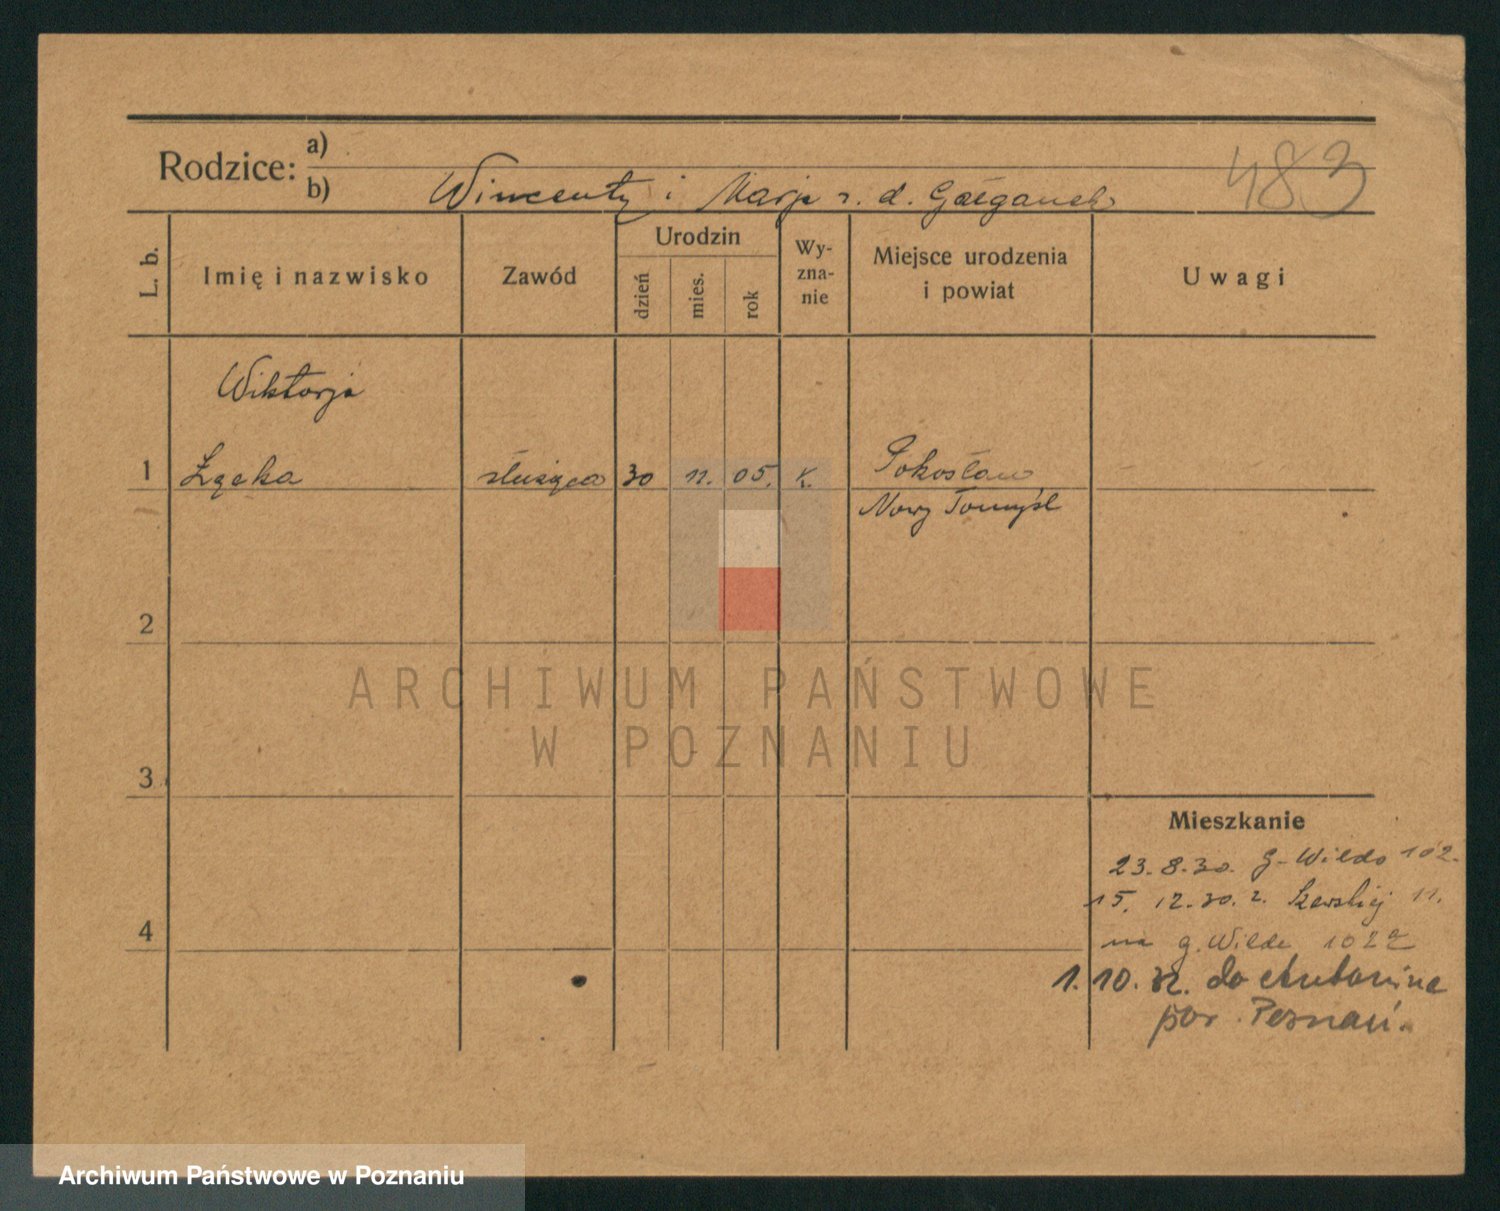 483
Rodzice: a)
b) Wincenty i Marja z. d.
L. b.
Imię i nazwisko
Zawód
Urodzin
dzień
mies.
rok
Wy-
zna-
nie
Miejsce urodzenia
i powiat
Uwagi
Wiktorja
1 Łącka służąca 30 11. 05. k. Pokosław
Nowy Tomyśl
2
3
4
Mieszkanie
23.8.30. G-Wilda 102.
15. 12.30. z. Szewskiej 11.
na g. Wilde 102
1.10.32. do Antonina
pow. Poznań.
ARCHIWUM PAŃSTWOWE
W POZNANIU
Archiwum Państwowe w Poznaniu